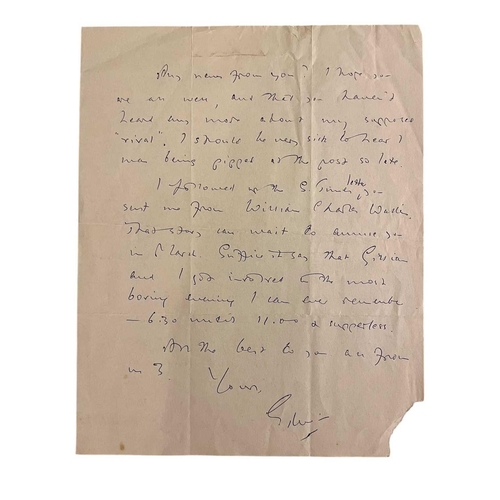 Any news from you? I hope you
are all well, and that you haven't
heard any more about my supposed
"rival". I should be very sick to hear I
was being pipped at the post so late.
I followed up the S. Times letter you
sent me from William Charles Watkin.
That story can wait to amuse you
in March. Suffice it say that Gillian
and I got involved in the most
boring evening I can ever remember
— 6.30 until 11.00 & supperless.
All the best to you all from
us 3.
Yours,